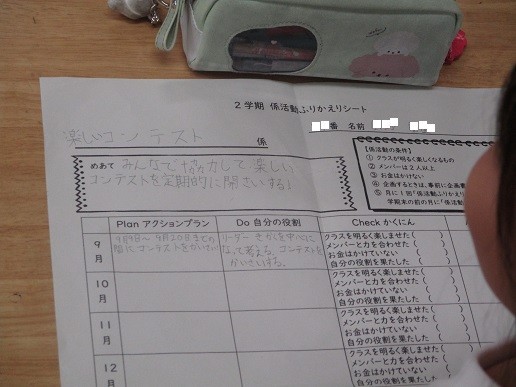 2学期 係活動ふりかえりシート
番 名前
楽しいコンテスト 係
めあて みんなで協力して楽しい
コンテストを定期的に開さいする!
【係活動の条件】
① クラスが明るく楽しくなるもの
② メンバーは2人以上
③ お金はかけない
④ 企画するときは、事前に企画書
⑤ 月に1回「係活動ふりかえり
学期末の前の月に「係
Plan アクションプラン
Do 自分の役割
Check かくにん
9月
9月9日~9月20日までの
間にコンテストをかいさい
リーダー
なって考える。コンテストを
かいさいする。
クラスを明るく楽しませた( )
メンバーと力を合わせた ( )
お金はかけていない ( )
自分の役割を果たした ( )
10月
クラスを明るく楽しませた( )
メンバーと力を合わせた ( )
お金はかけていない ( )
自分の役割を果たした ( )
11月
クラスを明るく楽しませた( )
メンバーと力を合わせた ( )
お金はかけていない ( )
自分の役割を果たした ( )
12
クラスを明るく楽しませた(
メンバーと力を合わせた (
お金はかけていない (
自分の役割を果たした